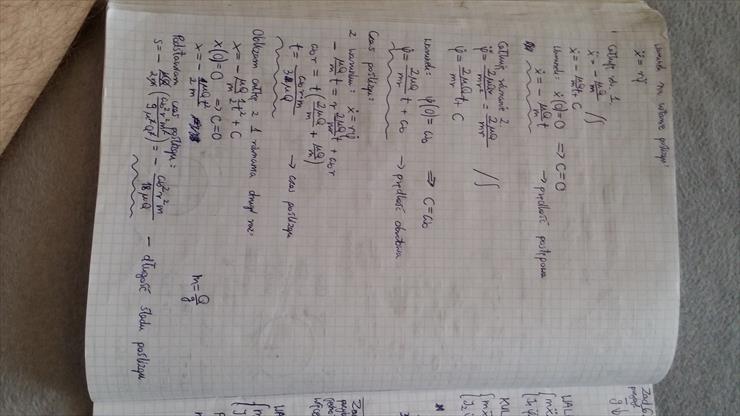 Warunek na ustanie poślizgu:
ẋ = rφ̇
Całkuję rów. 1
ẍ = - μQ/m /∫
ẋ = - μQ/m t + C
Warunek: ẋ(0) = 0 ⇒ C = 0
ẋ = - μQ/m t → prędkość postępowa
Całkuję równanie 2
φ̈ = 2μQr/mr² = 2μQ/mr /∫
φ̇ = 2μQ/mr t + C
Warunek: φ̇(0) = ω₀ ⇒ C = ω₀
φ̇ = 2μQ/mr t + ω₀ → prędkość obrotowa
Czas poślizgu:
z warunku: ẋ = rφ̇
- μQ/m t = r 2μQ/mr t + ω₀r
ω₀r = t(2μQ/m + μQ/m)
t = ω₀rm/3μQ → czas poślizgu
Obliczam całkę z 1 równania drugi raz:
x = - μQ/m ½t² + C
x(0) = 0 ⇒ C = 0
x = - μQt²/2m
m = Q/g
Podstawiam czas poślizgu:
s = - μQ/2m (ω₀²r²m²/9μ²Q²) = - ω₀²r²m/18μQ - długość śladu poślizgu